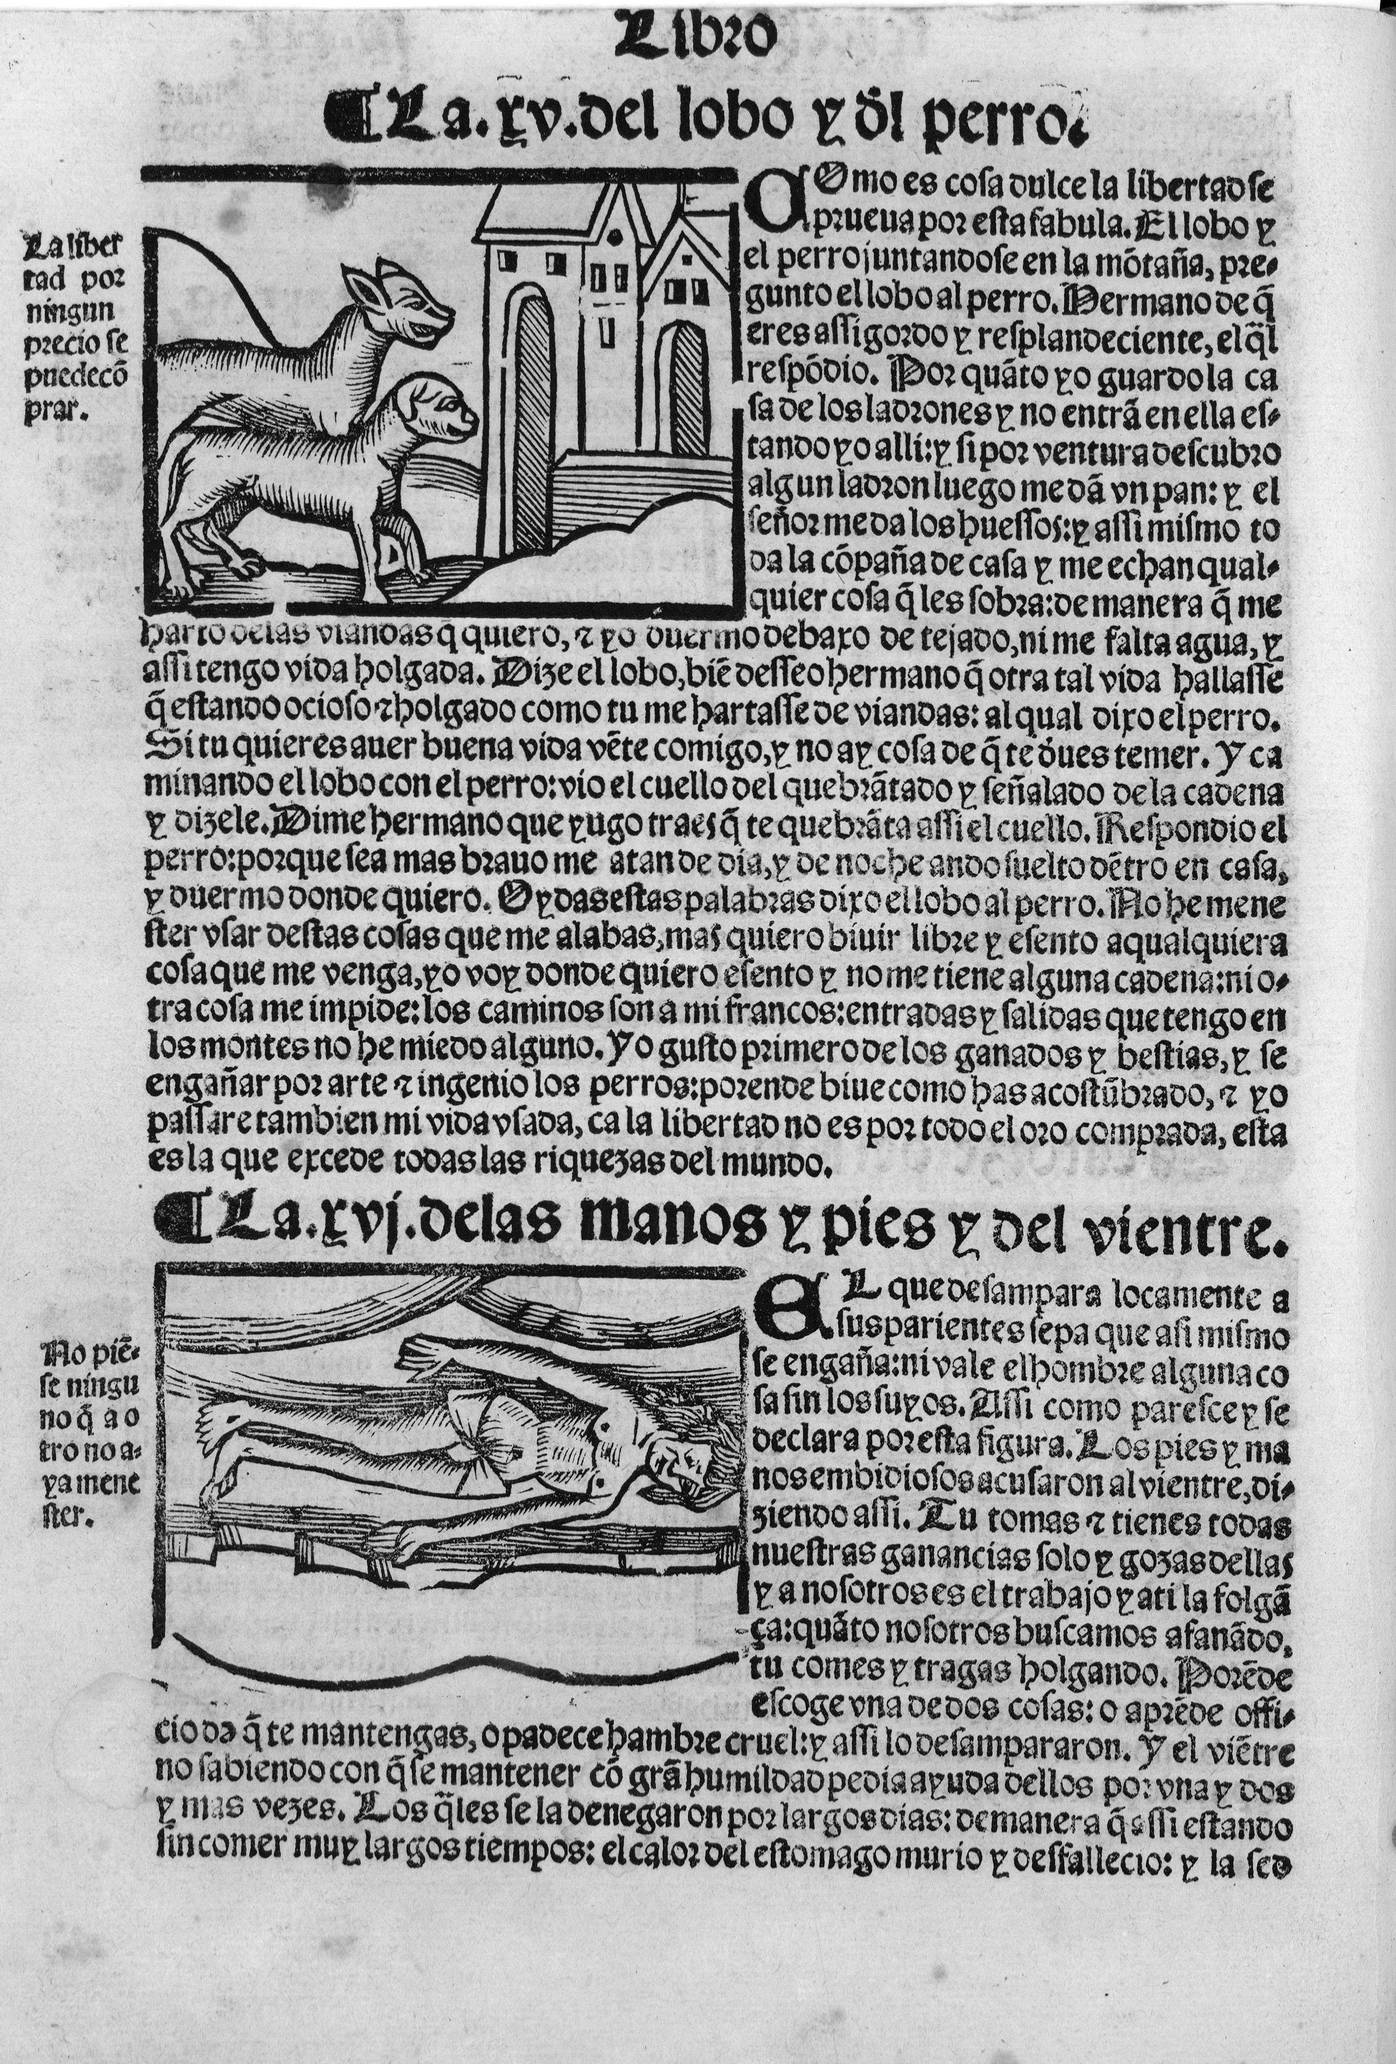 Libro
¶ La. xv. del lobo y ďl perro.
La liber
tad por
ningun
precio se
puedecõ
prar.
COmo es cosa dulce la libertad se
prueua por esta fabula. El lobo y
el perro juntandose en la mõtaña, pre-
gunto el lobo al perro. Hermano de q̃
eres assi gordo y resplandeciente, el q̃l
respõdio. Por quãto yo guardo la ca
sa de los ladrones y no entrã en ella es-
tando yo alli: y si por ventura descubro
algun ladron luego me dã vn pan: y el
señor me da los huessos: y assi mismo to
da la cõpaña de casa y me echan qual-
quier cosa q̃ les sobra: de manera q̃ me
harto delas viandas q̃ quiero, ⁊ yo duermo debaxo de tejado, ni me falta agua, y
assi tengo vida holgada. Dize el lobo, biẽ desseo hermano q̃ otra tal vida hallasse
q̃ estando ocioso ⁊ holgado como tu me hartasse de viandas: al qual dixo el perro.
Si tu quieres auer buena vida vẽte comigo, y no ay cosa de q̃ te ďues temer. Y ca
minando el lobo con el perro: vio el cuello del quebrãtado y señalado de la cadena
y dizele. Dime hermano que yugo traes q̃ te quebrãta assi el cuello. Respondio el
perro: porque sea mas brauo me atan de dia, y de noche ando suelto dẽtro en casa,
y duermo donde quiero. Oydas estas palabras dixo el lobo al perro. No he mene
ster vsar destas cosas que me alabas, mas quiero biuir libre y esento a qualquiera
cosa que me venga, yo voy donde quiero esento y no me tiene alguna cadena: ni o-
tra cosa me impide: los caminos son a mi francos: entradas y salidas que tengo en
los montes no he miedo alguno. Yo gusto primero de los ganados y bestias, y se
engañar por arte ⁊ ingenio los perros: porende biue como has acostũbrado, ⁊ yo
passare tambien mi vida vsada, ca la libertad no es por todo el oro comprada, esta
es la que excede todas las riquezas del mundo.
¶ La. xvj. delas manos y pies y del vientre.
No piẽ-
se ningu
no q̃ a o
tro no a-
ya mene
ster.
EL que desampara locamente a
sus parientes sepa que asi mismo
se engaña: ni vale el hombre alguna co
sa sin los suyos. Assi como paresce y se
declara por esta figura. Los pies y ma
nos embidiosos acusaron al vientre, di-
ziendo assi. Tu tomas ⁊ tienes todas
nuestras ganancias solo y gozas dellas
y a nosotros es el trabajo y a ti la folgã
ça: quãto nosotros buscamos afanãdo,
tu comes y tragas holgando. Porẽde
escoge vna de dos cosas: o aprẽde offi-
cio dõ q̃ te mantengas, o padece hambre cruel: y assi lo desampararon. Y el viẽtre
no sabiendo con q̃ se mantener cõ grã humildad pedia ayuda dellos por vna y dos
y mas vezes. Los q̃les se la denegaron por largos dias: de manera q̃ assi estando
sin comer muy largos tiempos: el calor del estomago murio y desfallecio: y la sed